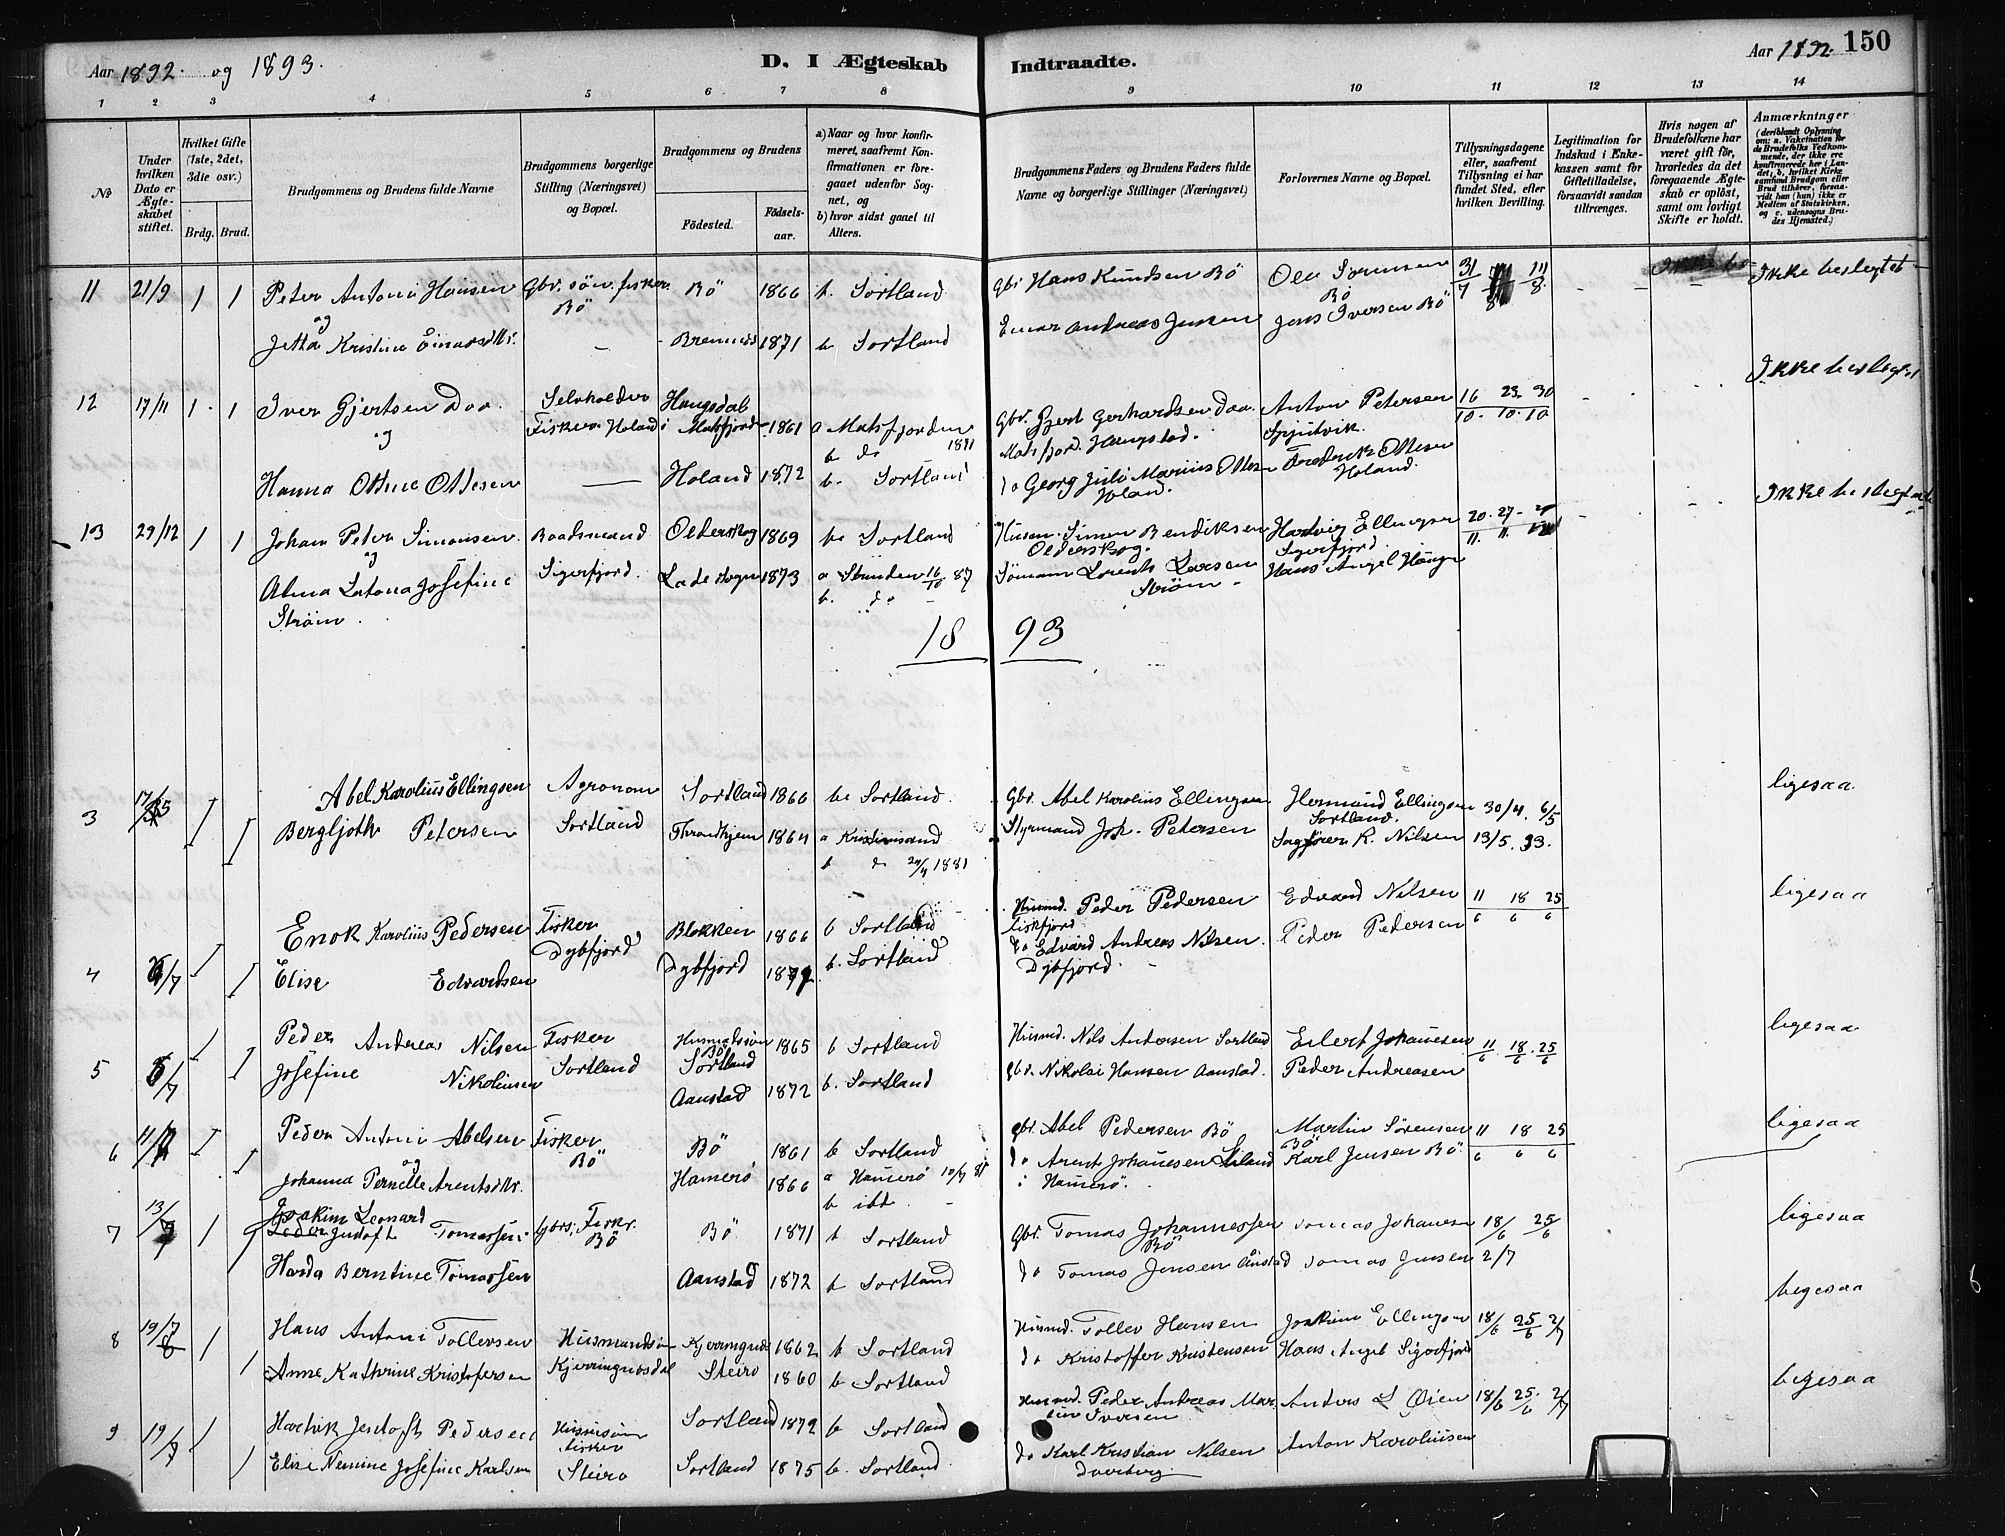 Aar 1892 og 1893.
D. I Ægteskab Indtraadte.
Aar 1892. 150
1 2 3 4 5 6 7 8 9 10 11 12 13 14
No
Under hvilken Dato er Ægteskabet stiftet.
Hvilket Gifte (1ste, 2det, 3die osv.)
Brdg. Brud.
Brudgommens og Brudens fulde Navne
Brudgommens borgerlige Stilling (Næringsvei) og Bopæl.
Brudgommens og Brudens
Fødested. Fødselsaar.
a) Naar og hvor konfirmeret, saafremt Konfirmationen er foregaaet udenfor Sognet, og
b) hvor sidst gaaet til Alters.
Brudgommens Faders og Brudens Faders fulde Navne og borgerlige Stillinger (Næringsvei)
Forlovernes Navne og Bopæl.
Tillysningsdagene eller, saafremt Tillysning ei har fundet Sted, efter hvilken Bevilling.
Legitimation for Indskud i Enkekassen samt for Giftetilladelse, forsaavidt saadan tiltrænges.
Hvis nogen af Brudefolkene har været gift før, hvorledes da det foregaaende Ægteskab er opløst, samt om lovligt Skifte er holdt.
Anmærkninger
(deriblandt Oplysning om: a. Vakcination for de Brudefolks Vedkommende, der ikke ere konfirmerede her i Landet; b. hvilket Kirkesamfund Brudgom eller Brud tilhører, forsaavidt han (hun) ikke er Medlem af Statskirken, og c. udensogns Brudes Hjemsted.)
11 21/9 1 1 Peter Antoni Hansen Gbr. søn. fisker. Bö 1866 b. Sortland Gbr Hans Knudsen Bö Ole Sörensen 31/7 11/8 Ikke beslegtet
og Bö Bö
Jetta Kristine Einarsdtr. Bremnes 1871 b Sortland Einar Andreas Jensen Jens Iversen Bö
12 17/11 1 1 Iver Gjertsen Daa. Selvholder Haugsdal Gbr. Gjert Gerhardsen Daa. Anton Petersen 16 23 30 Ikke beslegtet
og Fisker Holand i Matsfjord 1861 a Matsfjorden 1881 Matsfjord. Haugstad. Spjutvik. 10 10 10
b do
Hanna Otine Ottesen Holand 1872 b. Sortland do Georg Julö Marius Ottesen Frederik Ottesen
Holand. Holand.
13 29/12 1 1 Johan Peter Simonsen Baadsmand Olderskog 1869 b Sortland Husm. Simon Bendiksen Hartvig Ellingsen 20 27 Ikke beslegtet
og Olderskog. Sigerfjord 11. 11.
Alma Latona Josefine Sigerfjord. Lade sogn 1873 a Strinden 16/10 87 Sömann Lorents Larsen Hans Angel
Ström. b. do Ström
18 93
3 17/5 1 Abel Karolius Ellingsen Agronom Sortland 1866 b Sortland. Gbr. Abel Karolius Ellingsen Hermand Ellingsen 30/4 6/5 ligesaa
Sortland Sortland.
1 Bergljoth Petersen Throndhjem 1864 a Kristiansand Styrmand Joh. Petersen Sagförer K. Nilsen 13/5
b do 1881
4 1 Enok Karolius Pedersen Fisker Blokken 1866 b Sortland Husmd. Peder Pedersen Edvard Nilsen 11 18 25 ligesaa
Dybfjord Fiskfjord 6 6 6
1 Elise Edvardsen Dybfjord b. Sortland do Edvard Andreas Nilsen. Peder Pedersen
Dybfjord.
5 1 Peder Andreas Nilsen Fisker Husmandssön 1865 b Sortland Husmd. Nils Andersen Sortland Eilert Johansen 11/6 18/6 25/6 ligesaa
Sortland Sortland
1 Josefine Nikolaisen Aanstad 1872 b. Sortland gbr. Nikolai Hansen Aanstad. Peder Andreasen
6 1 Peder Antoni Abelsen Fisker Bö 1861 b Sortland gbr. Abel Pedersen Bö Martin Sörensen 11 18 25 ligesaa
og Bö Bö 6 6 6
1 Johanna Pernelle Arentsdtr. Hamerö 1866 a Hamerö do Arent Johansen Karl Jensen Bö
b ibd. i Hamerö.
7 13/7 1 Joakim Leonard
Tomassen gbrs. Fiskr. Bö 1871 b Sortland Gbr. Tomas Johannessen Tomas Johansen 18/6 25/6 ligesaa
Bö Bö
Harda Berntine Tomassen Aanstad 1872 b Sortland do Tomas Jensen Ånstad Tomas Jensen 2/7
8 1 Hans Antoni Tollevsen Husmandssön 1862 b Sortland Husmd. Tollev Hansen Joakim Ellingsen 18/6 25/6 2/7 ligesaa
1 Anne Kathrine Kristofersen Steiro 1860 b Sortland do Kristoffer Kristensen Hans Angel Sigerfjord
9 19/7 1 Hartvik Jentoft Pedersen Husmsön Sortland 1872 b Sortland Husmd. Peder Andreas Martin Iversen Anders L Öien 18/6 25/6 2/7 ligesaa
fisker
1 Elise Nemine Josefine Karlsen Steiro Sortland 1875 b. Sortland. do Karl Kristian Nilsen Anton Karoliusen